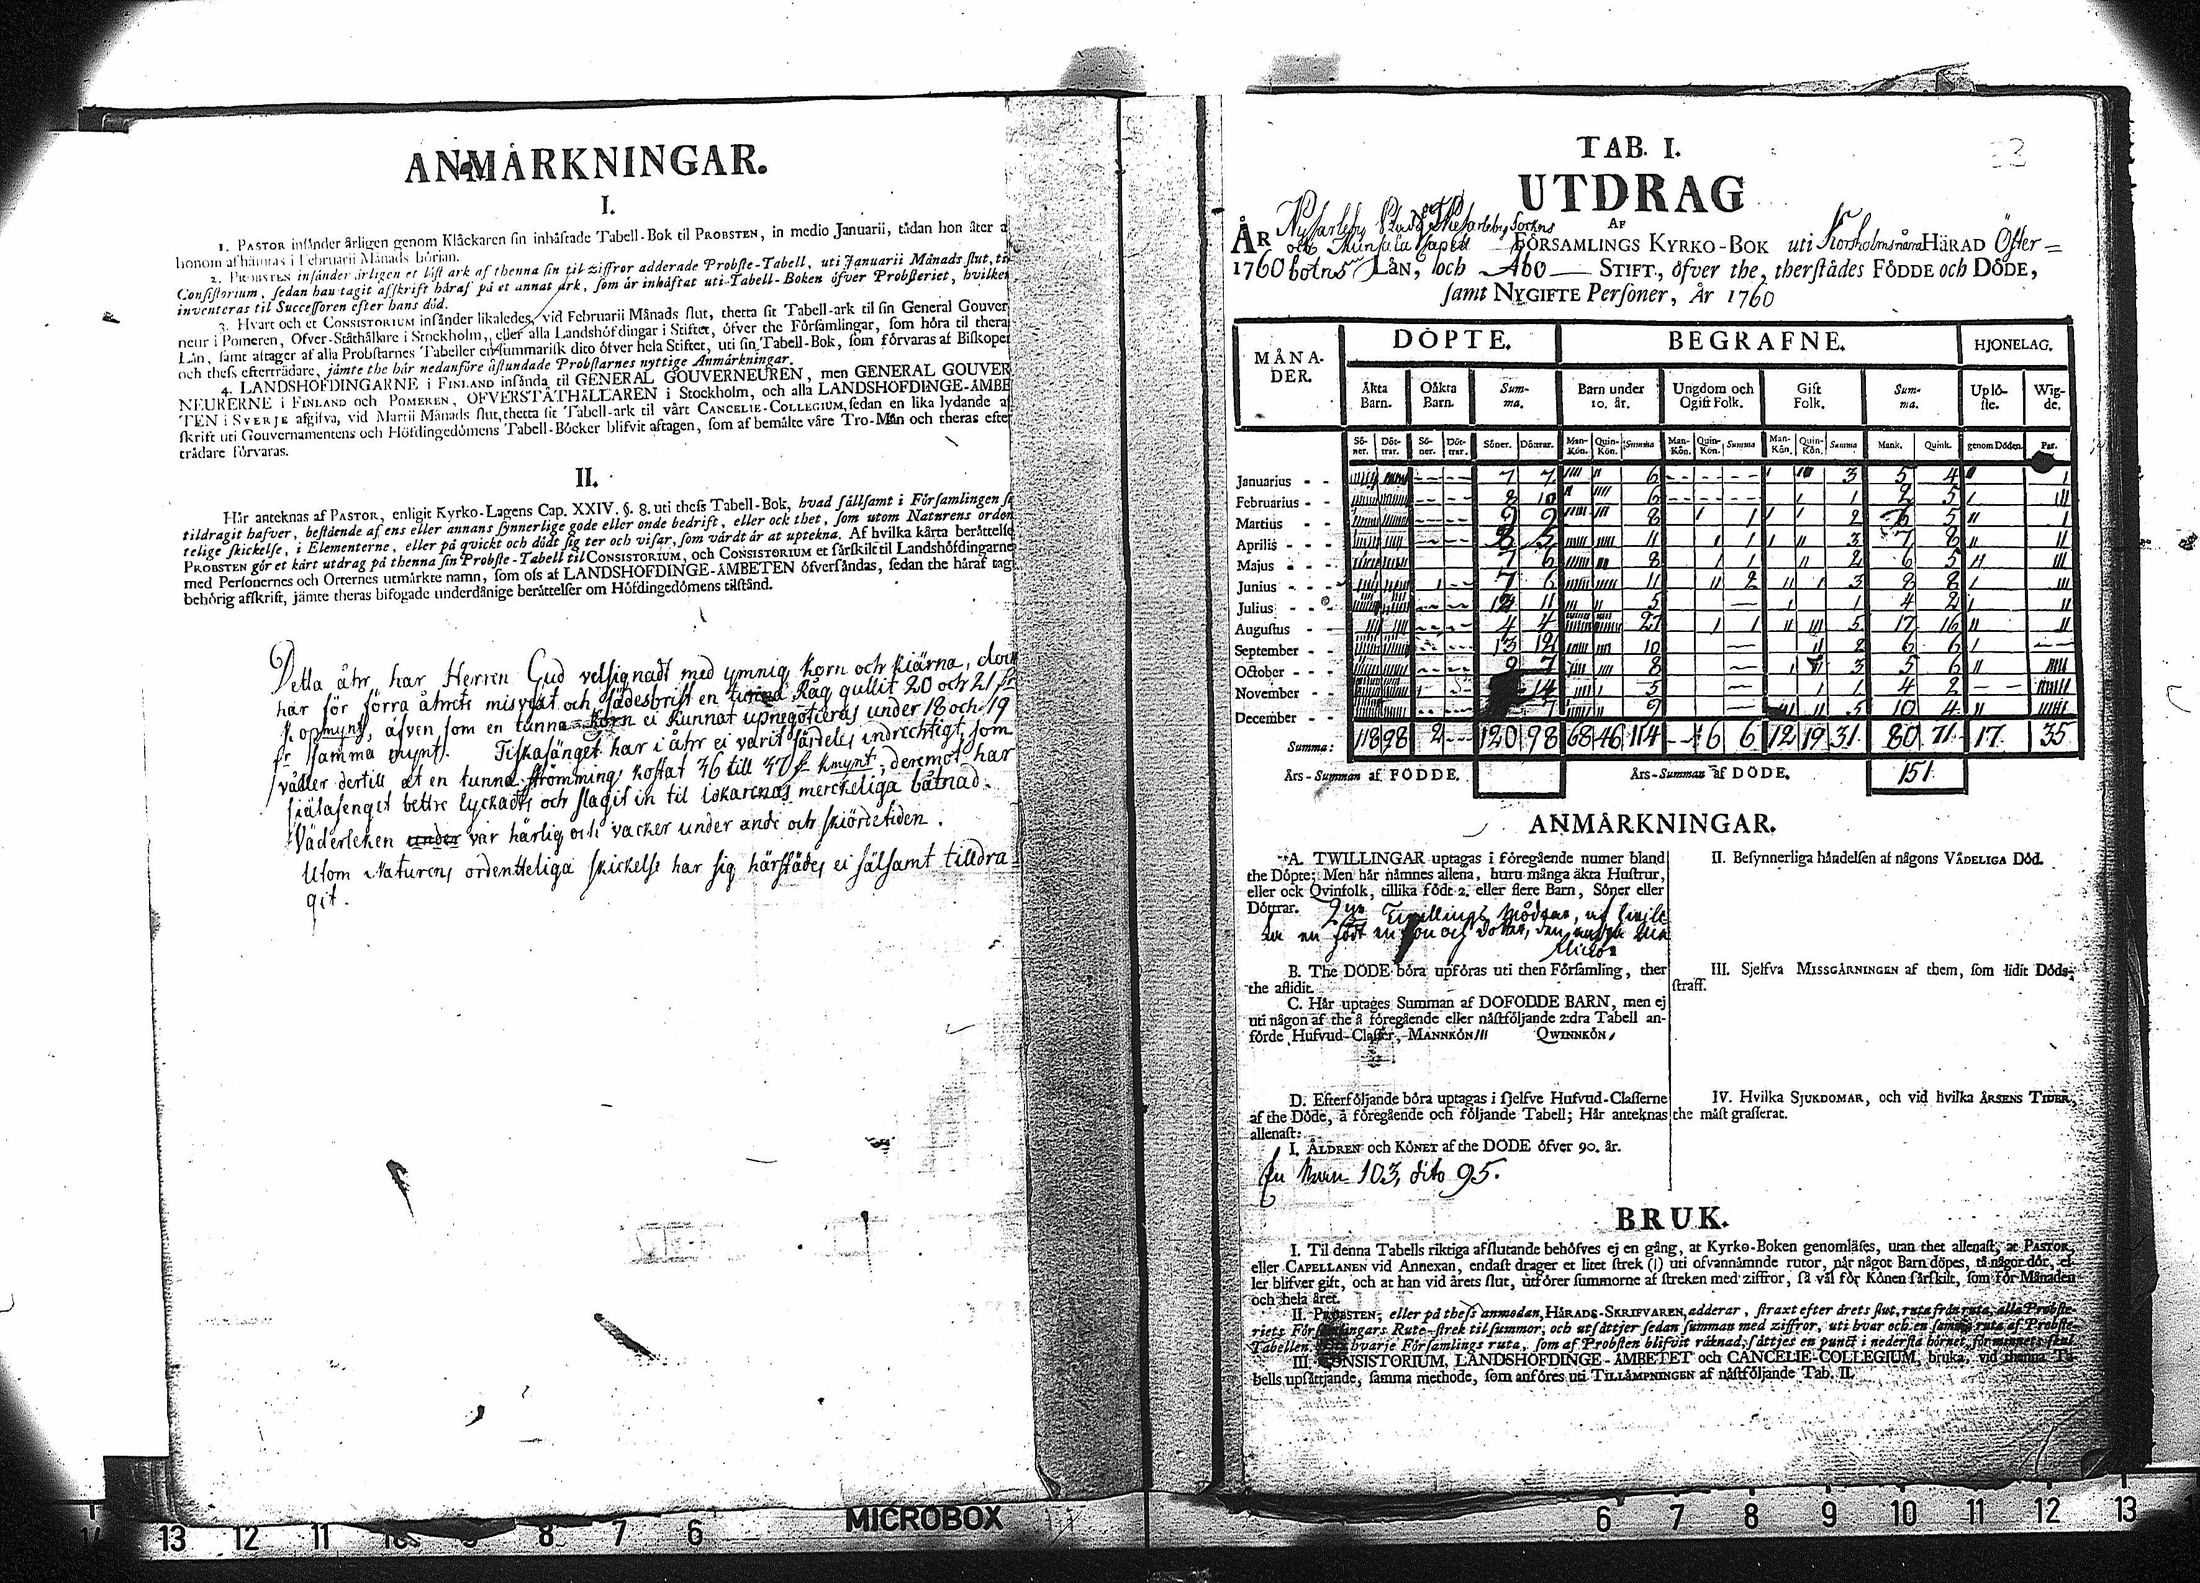 ANMÄRKNINGAR.
I.
1. PASTOR insänder årligen genom Klåckaren sin inhäftade Tabell-Bok til PROBSTEN, in medio Januarii, sådan hon åter
honom afhämtas i Februarii Månads början.
2. PROBSTEN insänder årligen et löst ark af thenna sin til ziffror adderade Probste-Tabell, uti Januarii Månads slut, til
Consistorium, sedan han tagit afskrift häraf på et annat ark, som är inhäftat uti Tabell-Boken öfver Probsteriet, hvilken
inventeras til Successoren efter hans död.
3. Hvart och et CONSISTORIUM insänder likaledes, vid Februarii Månads slut, thetta sit Tabell-ark til sin General Gouver
neur i Pomeren, Öfver-Ståthållare i Stockholm, eller alla Landshöfdingar i Stiftet, öfver the Församlingar, som höra til thera
Län, samt aftager af alla Probstarnes Tabeller en summarisk dito öfver hela Stiftet, uti sin Tabell-Bok, som förvaras af Biskopen
och thess efterträdare, jämte the här nedanföre åstundade Probstarnes nyttige Anmärkningar.
4. LANDSHÖFDINGARNE i FINLAND insända til GENERAL GOUVERNEUREN, men GENERAL GOUVER
NEURERNE i FINLAND och POMEREN, ÖFVERSTÅTHÅLLAREN i Stockholm, och alla LANDSHÖFDINGE-ÄMBE
TEN i SVERJE afgifva, vid Martii Månads slut, thetta sit Tabell-ark til vårt CANCELIE-COLLEGIUM, sedan en lika lydande af
skrift uti Gouvernamentens och Höfdingedömens Tabell-Böcker blifvit aftagen, som af bemälte våre Tro-Män och theras efter
trädare förvaras.
II.
Här anteknas af PASTOR, enligit Kyrko-Lagens Cap. XXIV. §. 8. uti thess Tabell-Bok, hvad sällsamt i Församlingen
tildragit hafver, bestående af ens eller annans synnerlige gode eller onde bedrift, eller ock thet, som utom Naturens orden
telige skickelse, i Elementerne, eller på qvickt och dödt sig ter och visar, som värdt är at uptekna. Af hvilka korta berättelse
PROBSTEN gör et kårt utdrag på thenna sin Probste-Tabell til CONSISTORIUM, och CONSISTORIUM et särskilt til Landshöfdingarne
med Personernes och Orternes utmärkte namn, som oss af LANDSHÖFDINGE-ÄMBETEN öfversändas, sedan the häraf tag
behörig afskrift, jämte theras bifogade underdånige berättelser om Höfdingedömens tilstånd.
Detta åhr har Herren Gud velsignadt med ymnig korn och kiärna, dock
har för förra åhrets misväxt och sädesbrist en tunna Råg gullit 20 och 21
kopmynt, äfven som en tunna korn ei kunnat upnegotieras under 18 och 19
fr samma mynt. Fiskafänget har i åhr ei varit särdeles indrechtigt, som
våller dertill at en tunna strömming kostat 36 till 37 kmynt, deremot har
siälafenget bettre lyckadts och slagit in til idkarenas merckeliga båtnad.
Väderleken under var härlig och vacker under ande och skiördetiden.
Utom Naturens ordentteliga skickelse har sig härstädes ei sälsamt tilldra=
git.
TAB. I.
UTDRAG
AF
Nykarleby Stad och Nykarleby Sockns
ÅR och Munsala Capell FÖRSAMLINGS KYRKO-BOK uti Korsholms norra HÄRAD Öster=
1760 botns LÄN, och Åbo STIFT, öfver the, therstädes FÖDDE och DÖDE,
samt NYGIFTE Personer, År 1760
MÅNADER. DÖPTE. BEGRAFNE. HJONELAG.
Äkta Barn. Oäkta Barn. Summa. Barn under 10. år. Ungdom och Ogift Folk. Gift Folk. Summa. Uplöste. Wigde.
Söner. Döttrar. Söner. Döttrar. Söner. Döttrar. Man-Kön. Quin-Kön. Summa Man-Kön. Quin-Kön. Summa Man-Kön. Quin-Kön. Summa Mank. Quink. genom Döden. Par.
Januarius 7 7 6 3 5 4
Februarius 8 10 6 1 2 5
Martius 9 9 8 1 2 6 5
Aprilis 11 1 3 7 8
Majus 7 6 8 1 2 6 5
Junius 7 6 11 2 3 8 8
Julius 12 11 5 1 4 2
Augustus 4 4 27 1 5 17 16
September 13 12 10 2 6 6
October 9 7 8 3 5 6
November 14 5 1 4 2
December 7 9 5 10 4
Summa: 118 98 2 120 98 68 46 114 6 6 12 19 31 80 71 17 35
Års-Summan af FÖDDE. Års-Summan af DÖDE. 151
ANMÄRKNINGAR.
A. TWILLINGAR uptagas i föregående numer bland
the Döpte; Men här nämnes allena, huru många äkta Hustrur,
eller ock Qvinfolk, tillika födt 2. eller flere Barn, Söner eller
Döttrar. 2ne Twillings Mödrar, af hvilka
en födt en son och dotter, den andra
B. The DÖDE böra upföras uti then Församling, ther
the aflidit.
C. Här uptages Summan af DÖFÖDDE BARN, men ej
uti någon af the å föregående eller nästföljande 2:dra Tabell an-
förde Hufvud-Classer, MANNKÖN III QWINNKÖN I
D. Efterföljande böra uptagas i sjelfve Hufvud-Classerne
af the Döde, å föregående och följande Tabell; Här anteknas
allenast:
I. ÅLDREN och KÖNET af the DÖDE öfver 90. år.
En Man 103, dito 95.
II. Besynnerliga händelsen af någons VÅDELIGA Död.
III. Sjelfva MISSGÄRNINGEN af them, som lidit Döds-
straff.
IV. Hvilka SJUKDOMAR, och vid hvilka ÅRSENS TIDER,
the mäst grasserat.
BRUK.
I. Til denna Tabells riktiga afslutande behöfves ej en gång, at Kyrko-Boken genomläses, utan thet allenast, at PASTOR,
eller CAPELLANEN vid Annexan, endast drager et litet strek (I) uti ofvannämnde rutor, når något Barn döpes, tå någor dör, el-
ler blifver gift, och at han vid årets slut, utförer summorne af streken med ziffror, så väl för Könen särskilt, som för Månaden
och hela året.
II. PROBSTEN, eller på thess anmodan, HÄRADS-SKRIFVAREN, adderar, straxt efter årets slut, ruta från ruta, alla Probste-
riets Församlingars Rute-strek til summor, och utsättjer sedan summan med ziffror, uti hvar och en samma ruta af Probste-
Tabellen. hvarje Församlings ruta, som af Probsten blifvit räknad, sättjes en punct i nedersta hörnet, för minnets skul.
III. CONSISTORIUM, LANDSHÖFDINGE-ÄMBETET och CANCELIE-COLLEGIUM, bruka, vid thenna Ta-
bells upsättjande, samma methode, som anföres uti TILLÄMPNINGEN af nästföljande Tab. II.
13 12 11 8 7 6 MICROBOX 6 7 8 9 10 11 12 13